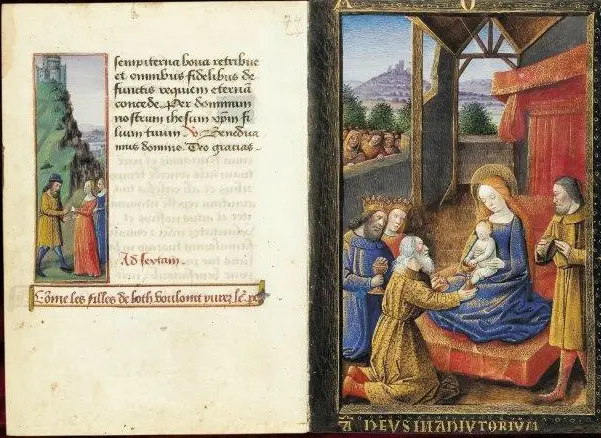 74
sempiterna bona retribue
et omnibus fidelibus de
functis requiem eternā
concede. Per dominum
nostrum ihesum xp̄m fi
lium tuum. Benedica
mus domino. Deo gracias.
Ad sextam.
Cōme les filles de loth
DEVS IN ADIVTORIVM